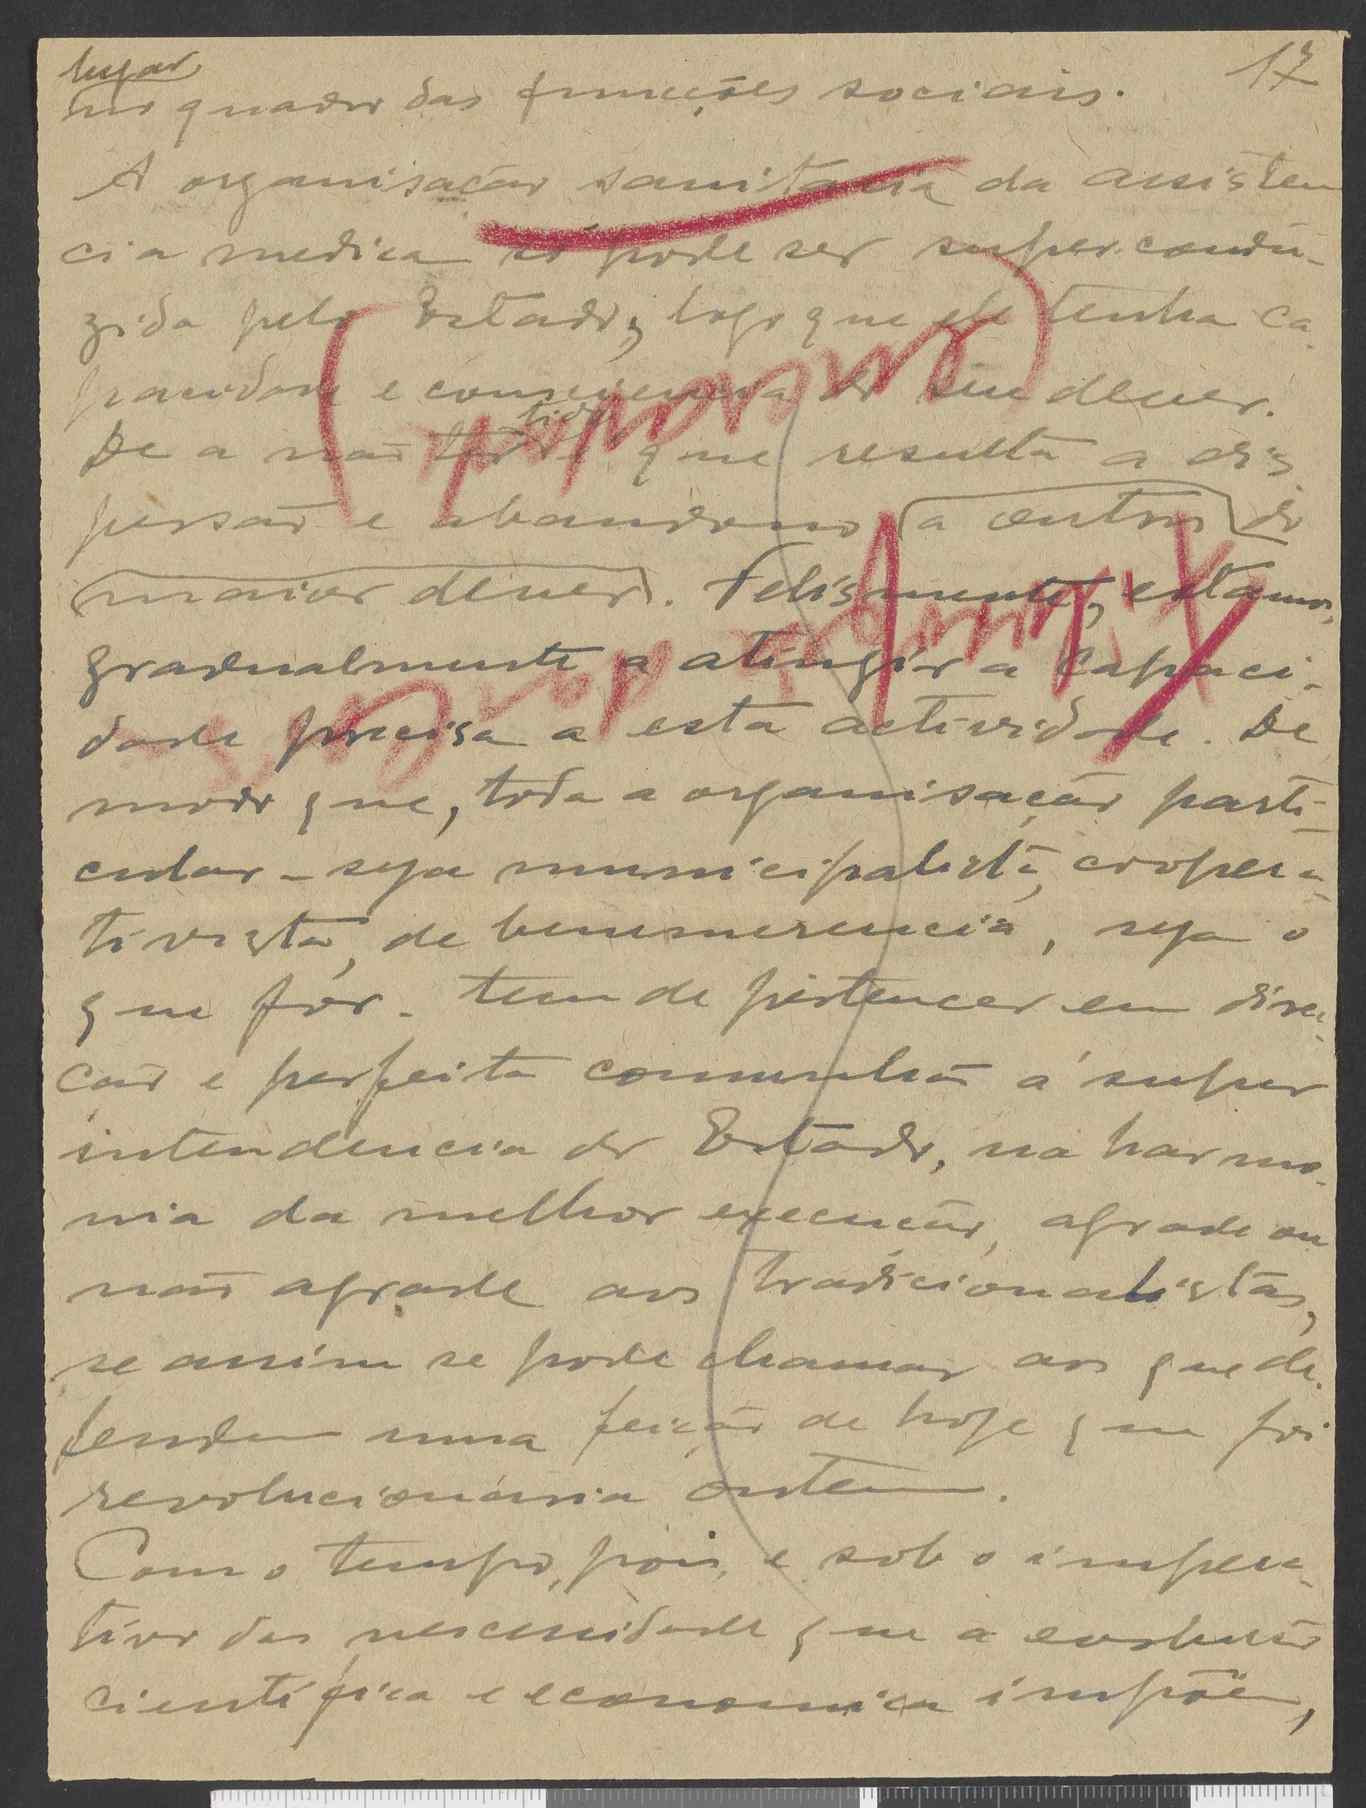 17
lugar
no quadro das funções sociais.
A organisação sanitaria da assisten
cia medica só pode ser super-condu-
zida pelo Estado, logo que ele tenha ca-
pacidade e consciencia do seu dever.
De a não ter tido é que resulta a dis-
persão e abandono a outros do
maior dever. Felismente, estamos,
gradualmente a atingir a capaci-
dade precisa a esta actividade. De
modo que, toda a organisação parti-
cular - seja municipalista, coopera-
tivista, de benemerencia, seja o
que fôr - tem de pertencer em dire-
ção e perfeita comunhão á super
intendencia do Estado, na harmo-
nia da melhor execução, agrade ou
não agrade aos tradicionalistas,
se assim se pode chamar aos que de-
fendem uma feição de hoje que foi
revolucionária ontem.
Com o tempo, pois, e sob o impera-
tivo das necessidade que a evolução
cientifica e economica impõem,